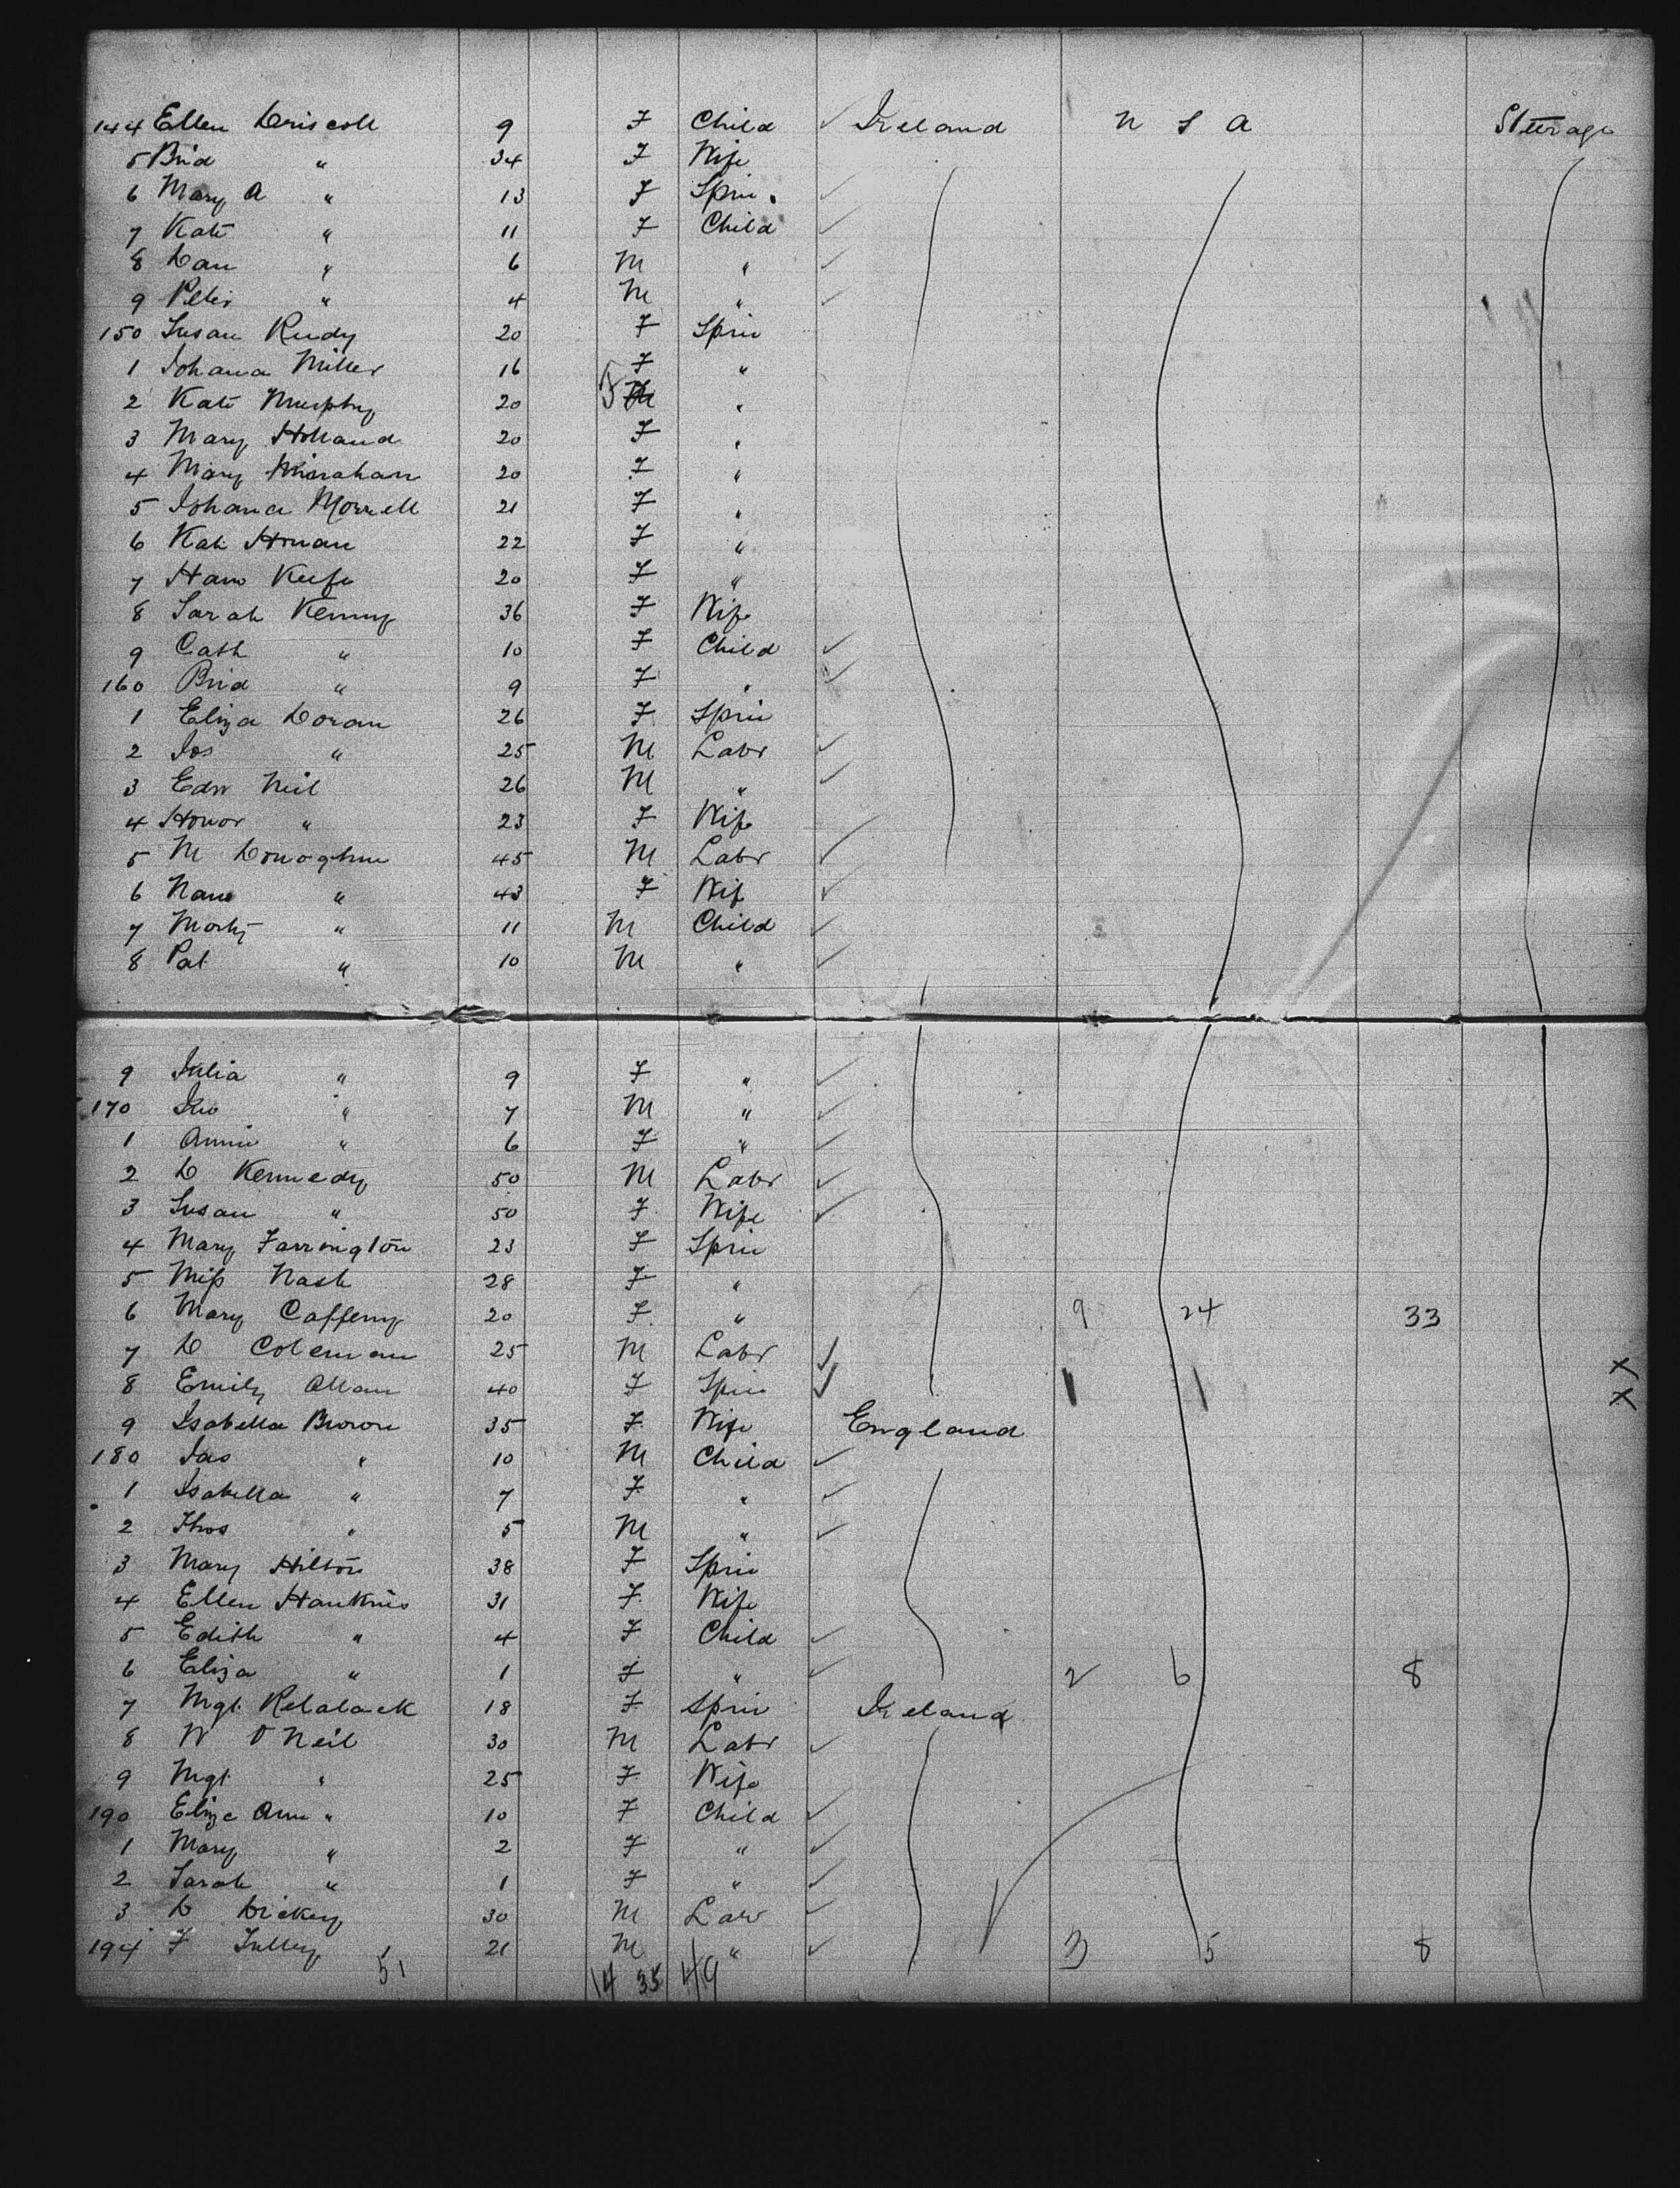 144 Ellen Driscoll 9 F Child ✓ Ireland U S A Steerage
5 Brid " 34 F Wife
6 Mary A " 13 F Spin. ✓
7 Kate " 11 F Child ✓
8 Dan " 6 M " ✓
9 Peter " 4 M " ✓
150 Susan Ruidy 20 F Spin
1 Johana Miller 16 F "
2 Kate Murphy 20 F "
3 Mary Holland 20 F "
4 Mary 20 F "
5 Johana Morrell 21 F "
6 Kate Honan 22 F "
7 Hano Keefe 20 F "
8 Sarah Kenny 36 F Wife
9 Cath " 10 F Child ✓
160 Brid " 9 F " ✓
1 Eliza Doran 26 F Spin
2 Jos " 25 M Labr ✓
3 Edw Neil 26 M " ✓
4 Honor " 23 F Wife
5 M Donoghue 45 M Labr ✓
6 Nano " 43 F Wife ✓
7 Morty " 11 M Child ✓
8 Pat " 10 M " ✓
9 Julia " 9 F " ✓
170 Jno " 7 M " ✓
1 Annie " 6 F " ✓
2 D Kennedy 50 M Labr ✓
3 Susan " 50 F Wife ✓
4 Mary Farrington 23 F Spin
5 Miss Nash 28 F "
6 Mary Cafferny 20 F " 9 24 33
7 D Coleman 25 M Labr ✓ X
8 Emily Allan 40 F Spin ✓ 1 1 X
9 Isabella Brown 35 F Wife England
180 Jas " 10 M Child ✓
1 Isabella " 7 F " ✓
2 Thos " 5 M " ✓
3 Mary Hilton 38 F Spin
4 Ellen Hankins 31 F Wife
5 Edith " 4 F Child ✓
6 Eliza " 1 F " ✓ 2 6 8
7 Mgt Relalack 18 F Spin Ireland
8 W O'Neil 30 M Labr ✓
9 Mgt " 25 F Wife
190 Eliza Ann " 10 F Child ✓
1 Mary " 2 F " ✓
2 Sarah " 1 F " ✓
3 D Dickey 30 M Labr ✓
194 F Tulley 21 M " ✓ 3 5 8
51 14 35 49